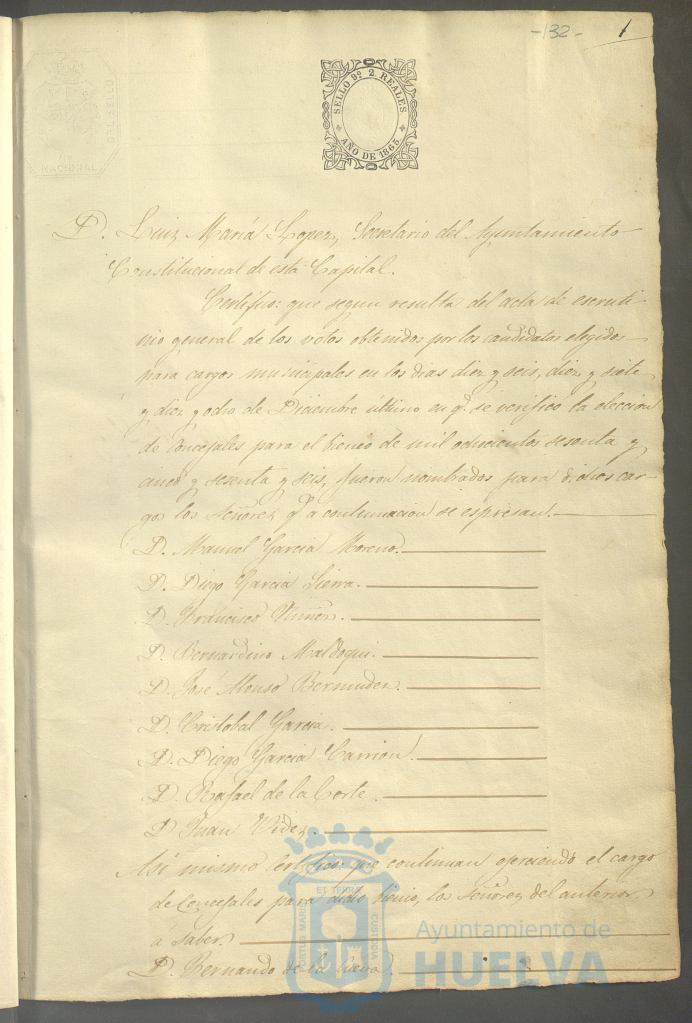 -132-
1
SELLO 9º 2 REALES
AÑO DE 1865.
NACIONAL
D. Luis María Lopez, Secretario del Ayuntamiento
Constitucional de esta Capital.
Certifico: que segun resulta del acta de escruti-
nio general de los votos obtenidos por los candidatos elegidos
para cargos municipales en los dias diez y seis, diez y siete
y diez y ocho de Diciembre último en q. se verificó la eleccion
de Concejales para el bienio de mil ochocientos sesenta y
cinco y sesenta y seis, fueron nombrados para dichos car-
gos los Señores q. a continuacion se espresan.
D. Manuel Garcia Moreno.
D. Diego Garcia Sierra.
D. Francisco Nuñez.
D. Bernardino
D. José Alonso Bermudez.
D. Cristobal Garcia.
D. Diego Garcia Carrion.
D. Rafael de la Corte.
D. Juan Vides.
Asi mismo certifico: que continuan ejerciendo el cargo
de Concejales para dicho bienio, los Señores del anterior,
á saber.
D. Bernardo de la
PORTUS MARIS ET TERRE CUSTODIA
Ayuntamiento de
HUELVA